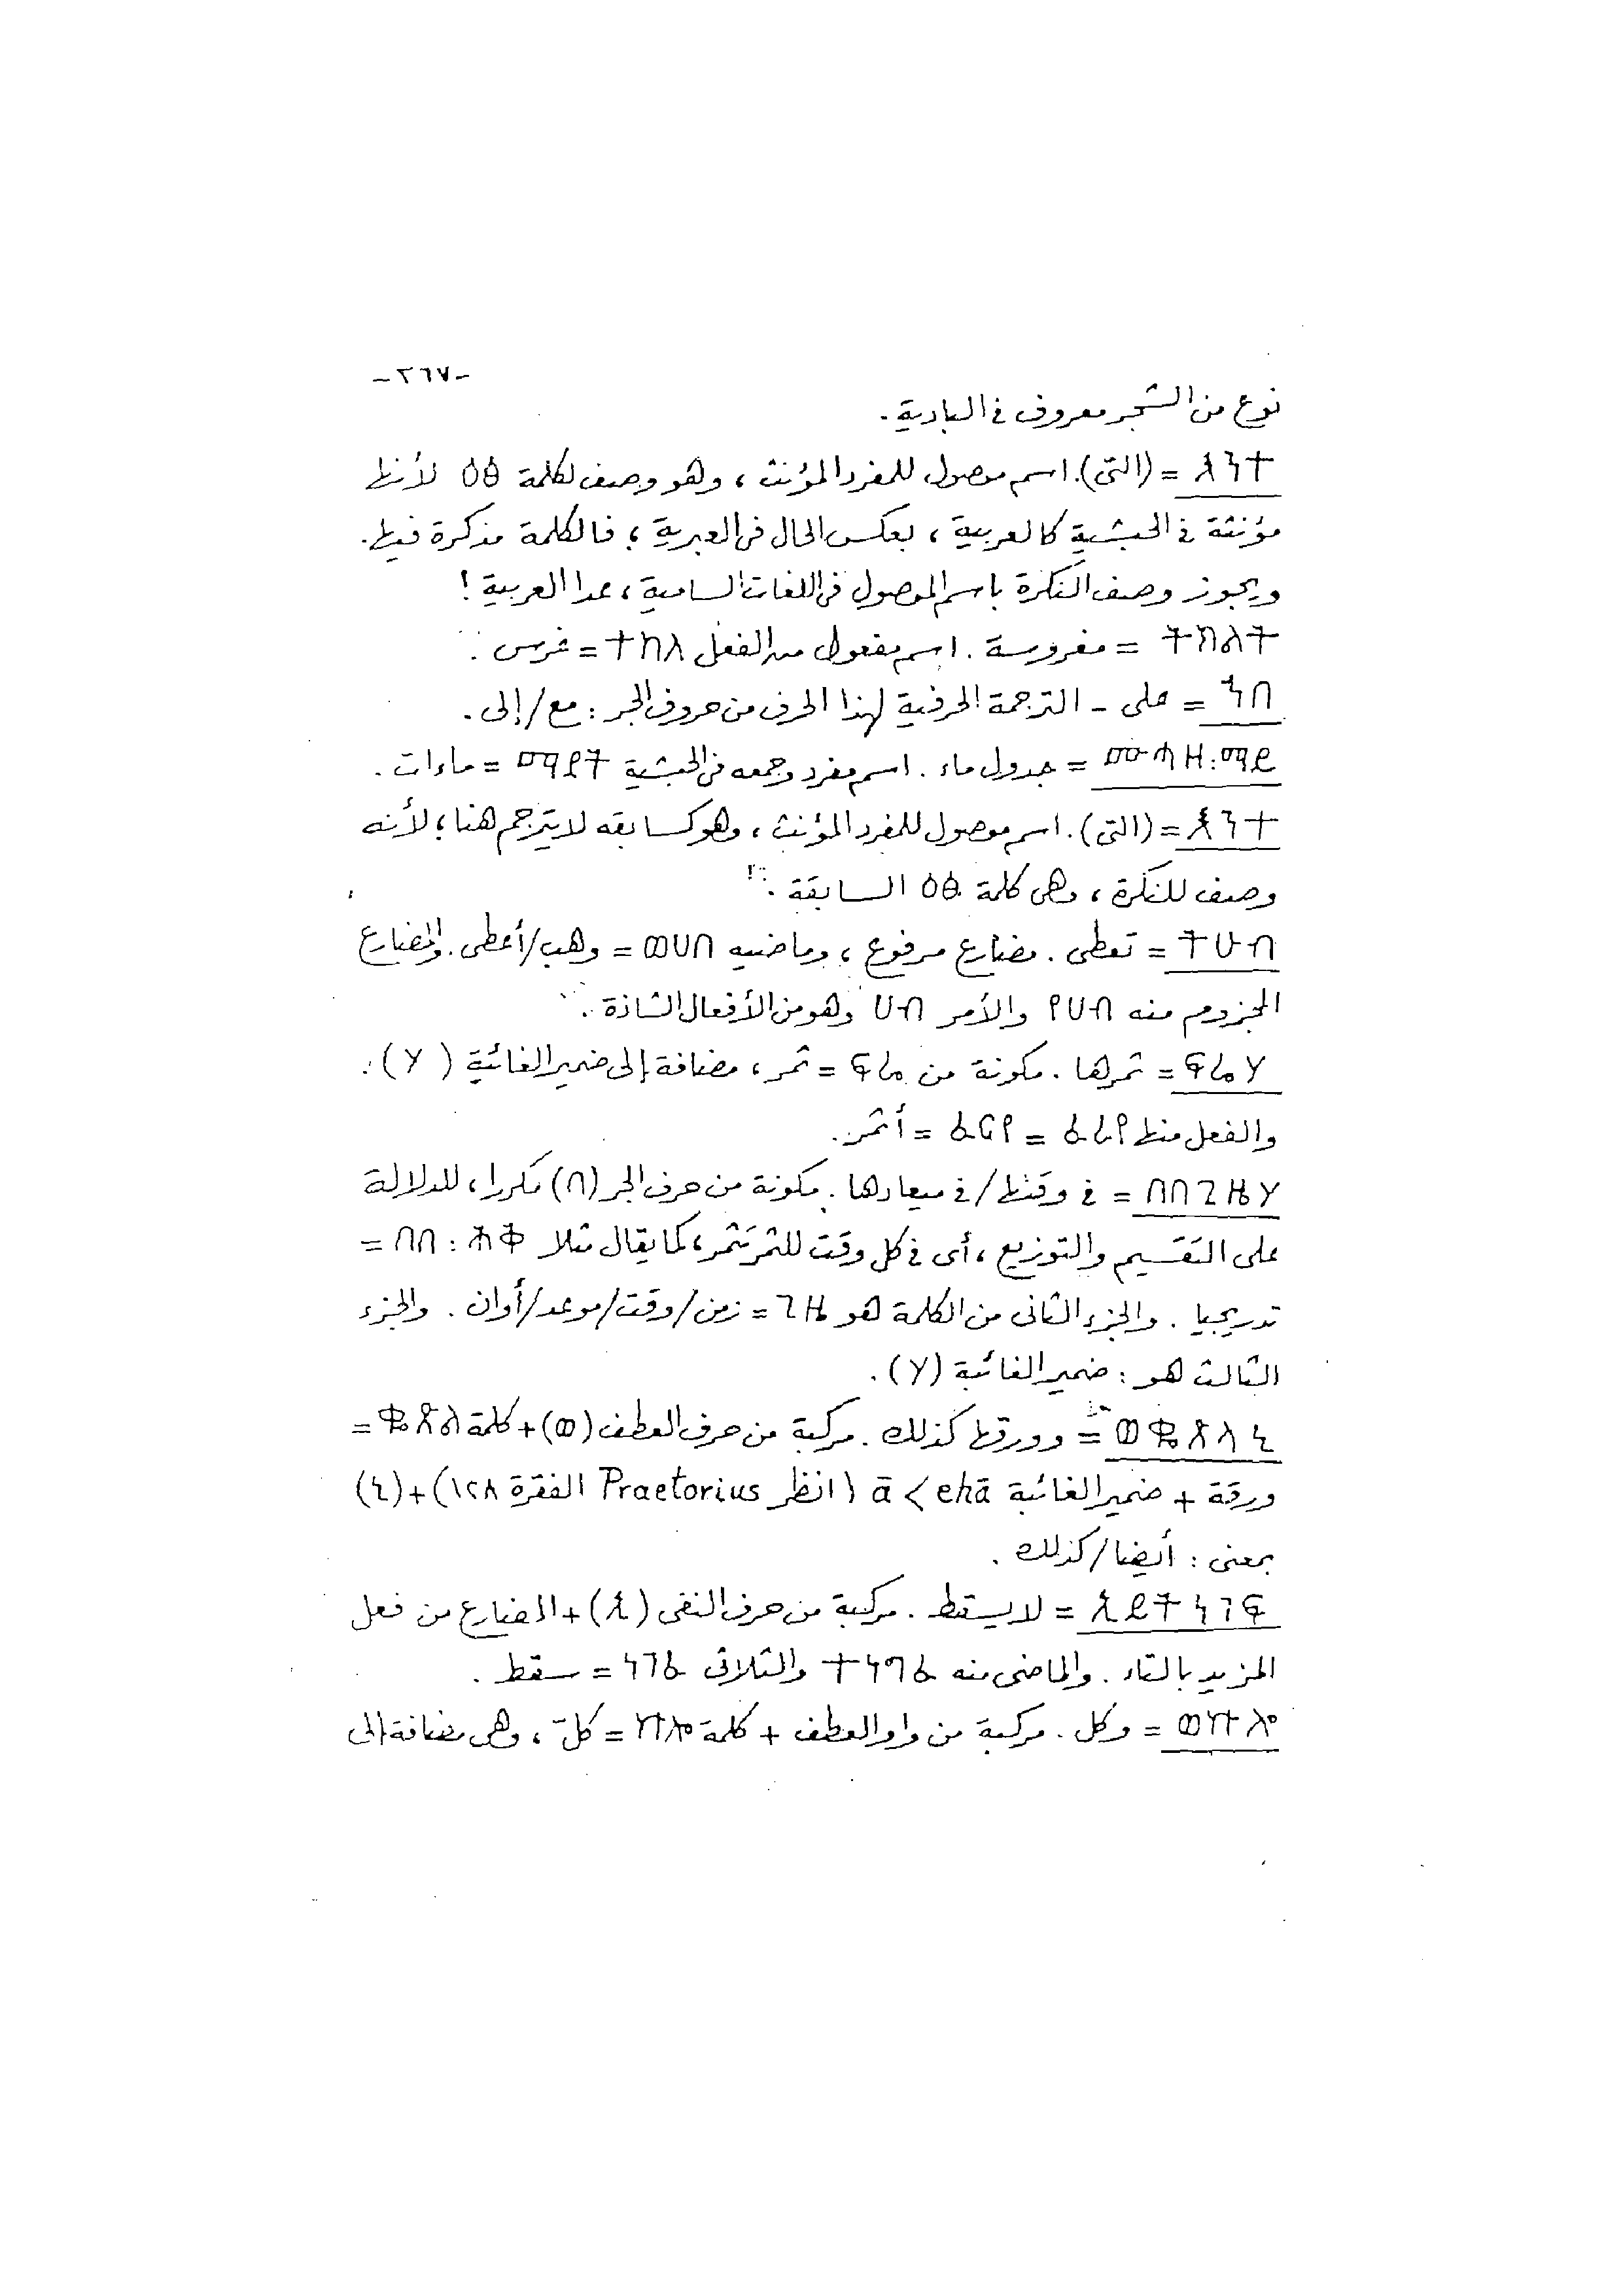 -٢٦٧-
نوع من الشجر معروف فى البادية.
እንተ = (التى). اسم موصول للمفرد المؤنث، وهو وصف لكلمة ዕፅ لأنها
مؤنثة فى الحبشية كالعربية، بعكس الحال فى العبرية؛ فالكلمة مذكرة فيها.
ويجوز وصف النكرة باسم الموصول فى اللغات السامية، عدا العربية!
ትክልት = مغروسة. اسم مفعول من الفعل ተከለ = غرس.
ኀበ = على - الترجمة الحرفية لهذا الحرف من حروف الجر: مع/إلى.
ሙሓዘ:ማይ = جدول ماء. اسم مفرد وجمعه فى الحبشية ማያት = ماءات.
እንተ = (التى). اسم موصول للمفرد المؤنث، وهو كسابقه لا يترجم هنا؛ لأنه
وصف للنكرة، وهى كلمة ዕፅ السابقة.
ትሁብ = تعطى. مضارع مرفوع، وماضيه ወሀበ = وهب/أعطى. والمضارع
المجزوم منه የሀብ والأمر ሀብ وهو من الأفعال الشاذة.
ፍሬሃ = ثمرها. مكونة من ፍሬ = ثمر، مضافة إلى ضمير الغائبة (ሃ).
والفعل منها ፈርየ = ፈረየ = أثمر.
በበጊዜሃ = فى وقتها/فى ميعادها. مكونة من حرف الجر (በ) مكررا، للدلالة
على التقسيم والتوزيع، أى فى كل وقت للثمر تثمر، كما يقال مثلا በበ:ሕቅ =
تدريجيا. والجزء الثانى من الكلمة هو ጊዜ = زمن/وقت/موعد/أوان. والجزء
الثالث هو: ضمير الغائبة (ሃ).
ወቈጽላኒ = وورقها كذلك. مركبة من حرف العطف (ወ) + كلمة ቈጽል =
ورقة + ضمير الغائبة ā < ehā (انظر Praetorius الفقرة ١٢٨) + (ኒ)
بمعنى: أيضا/كذلك.
ኢይትነገፍ = لا يسقط. مركبة من حرف النفى (ኢ) + المضارع من فعل
المزيد بالتاء. والماضى منه ተነግፈ والثلاثى ነገፈ = سقط.
ወኵሎ = وكل. مركبة من واو العطف + كلمة ኵሎ = كلّ، وهى مضافة إلى